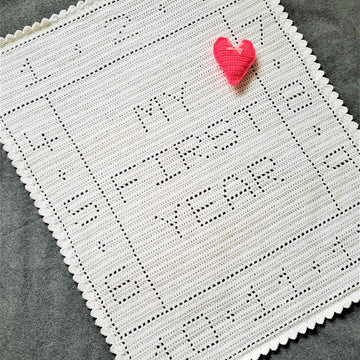 1 · 2 ·
MY
FIRST
YEAR
4
5
6
7
8
9
10 · 11 · 1